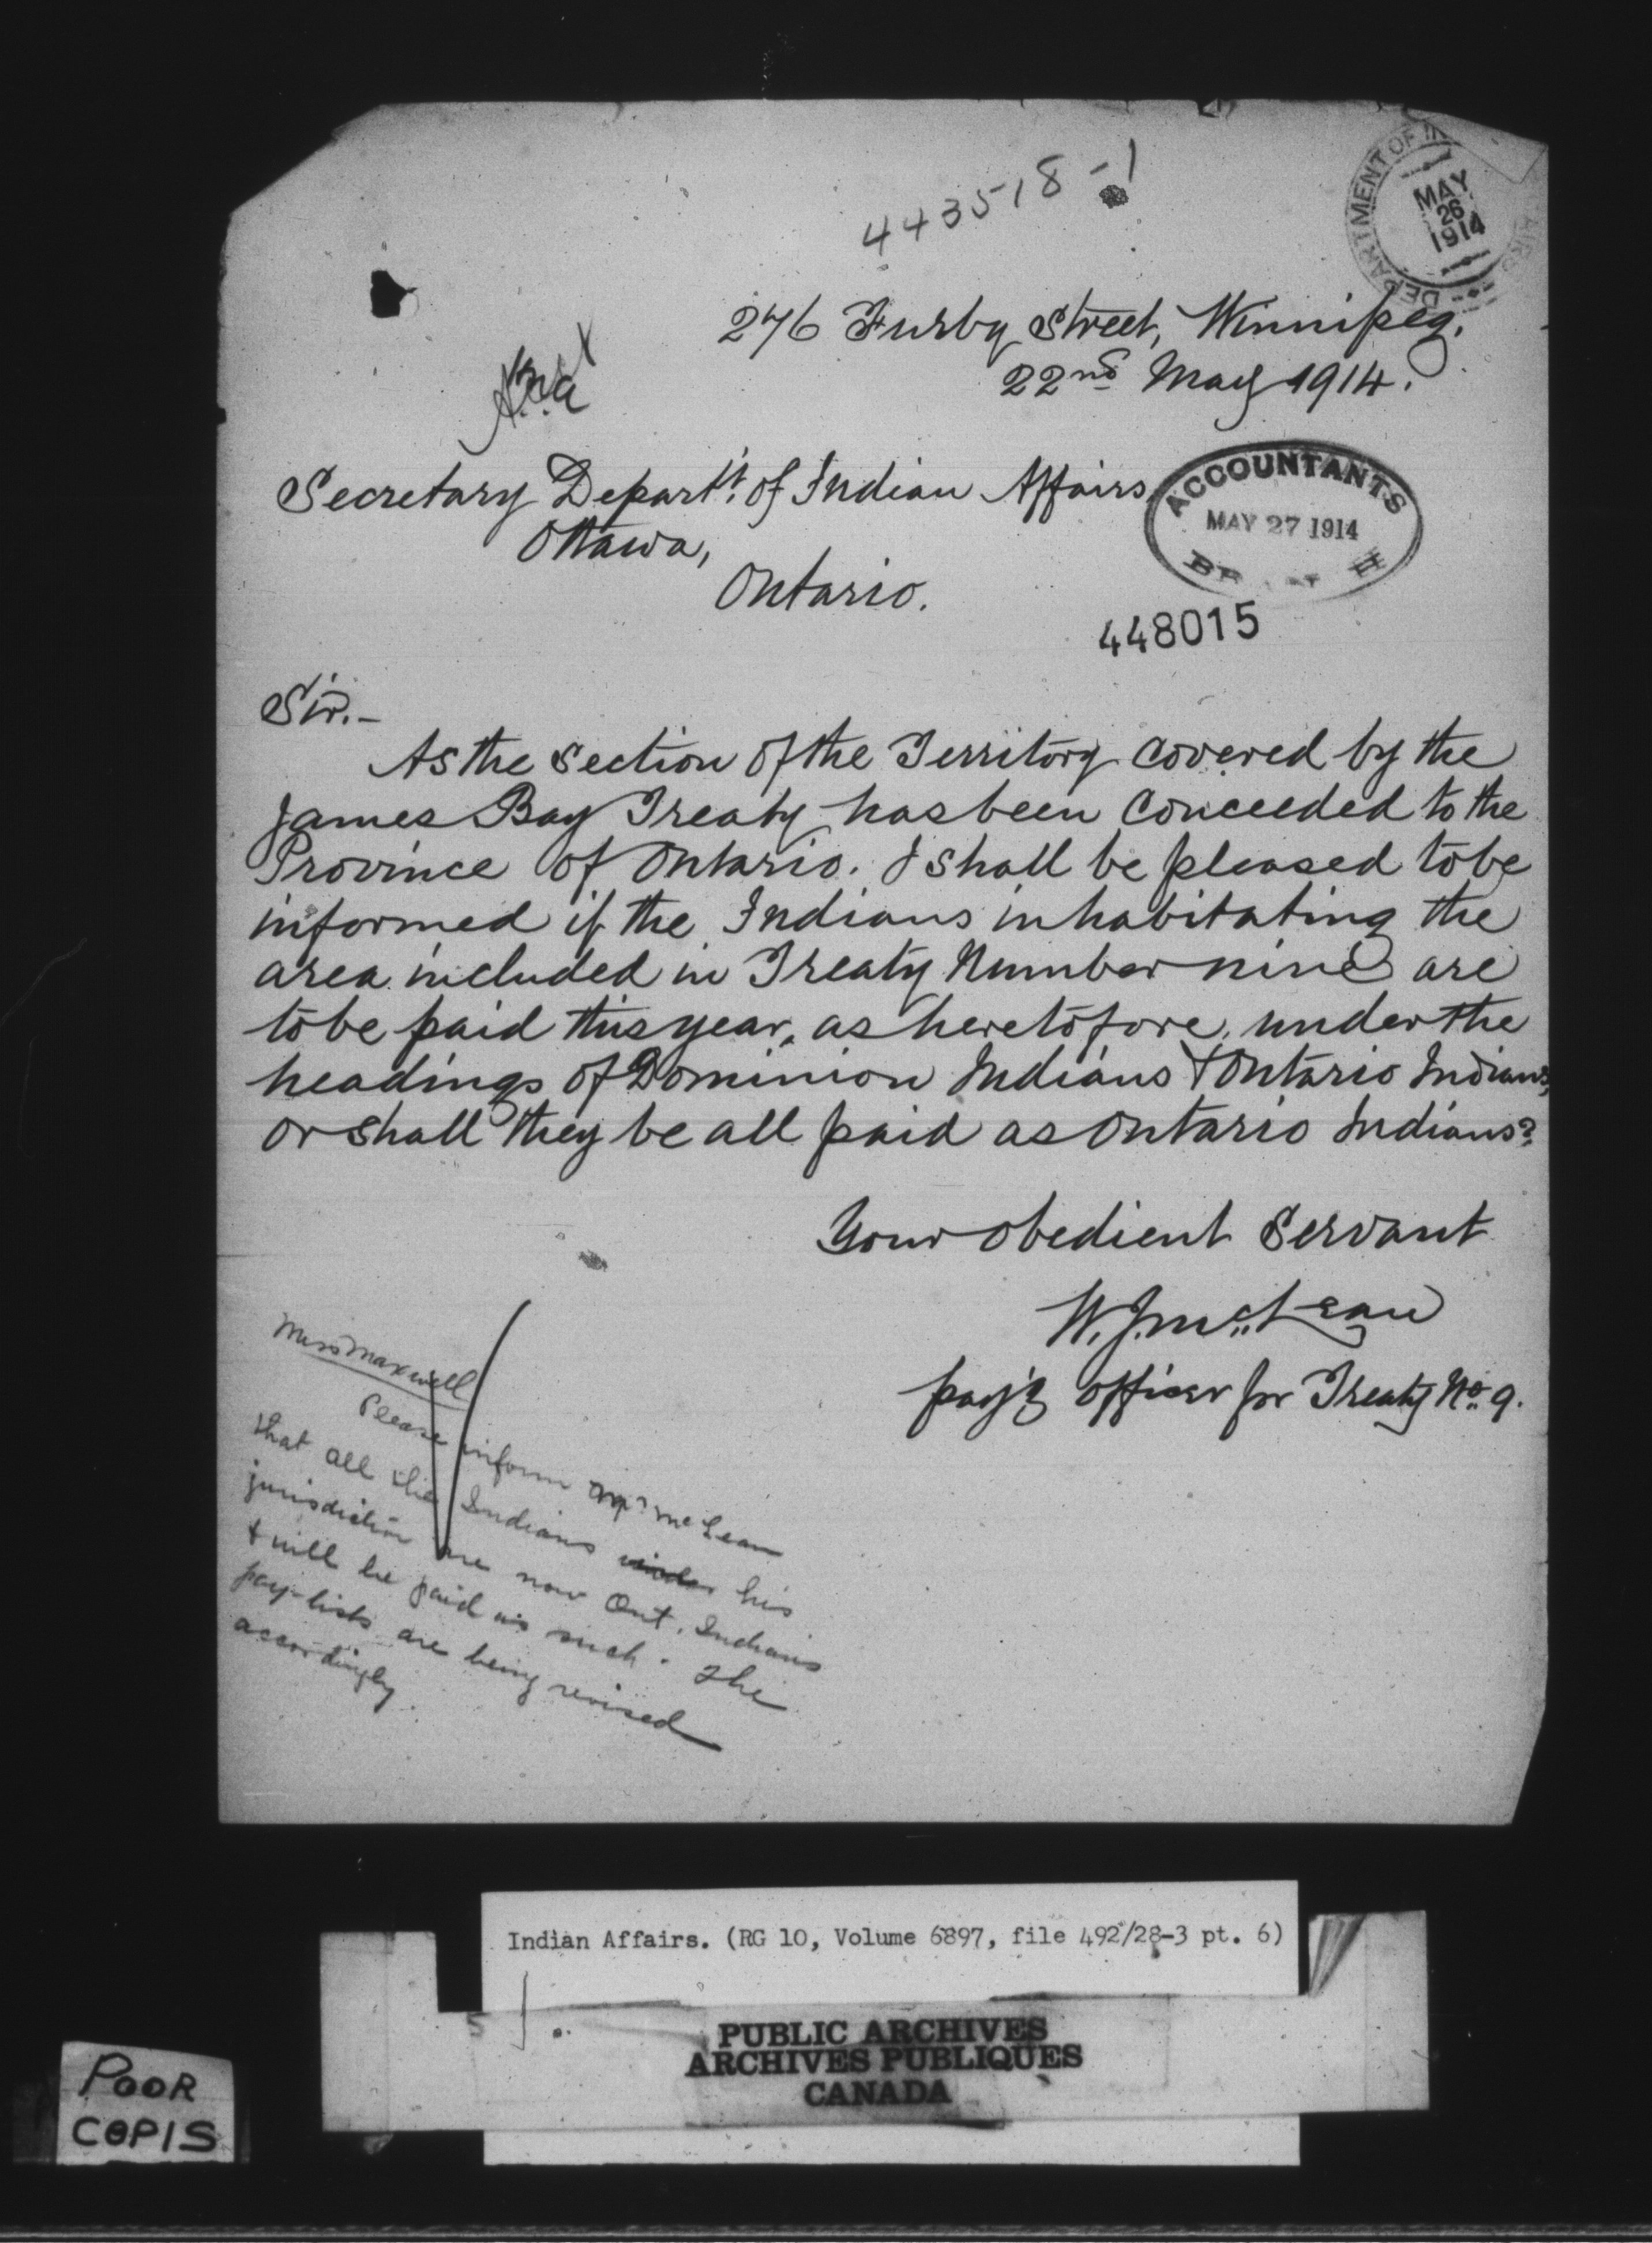 443518-1
DEPARTMENT OF IN
AIRS
MAY
26
1914
276 Furby Street, Winnipeg,
22nd May 1914.
Secretary Depart't. of Indian Affairs,
Ottawa,
Ontario.
ACCOUNTANTS
MAY 27 1914
448015
Sir.-
As the section of the Territory covered by the
James Bay Treaty has been conceeded to the
Province of Ontario. I shall be pleased to be
informed if the Indians inhabitating the
area included in Treaty Number nine are
to be paid this year, as heretofore, under the
headings of Dominion Indians & Ontario Indians,
or shall they be all paid as Ontario Indians?
Your obedient Servant
W. J. McLean
pay'g officer for Treaty No. 9.
Miss Maxwell
Please inform Mr. McLean
that all the Indians under his
jurisdiction are now Ont. Indians
& will be paid as such. The
pay-lists are being revised
accordingly.
Indian Affairs. (RG 10, Volume 6897, file 492/28-3 pt. 6)
PUBLIC ARCHIVES
ARCHIVES PUBLIQUES
CANADA
POOR
COPIS